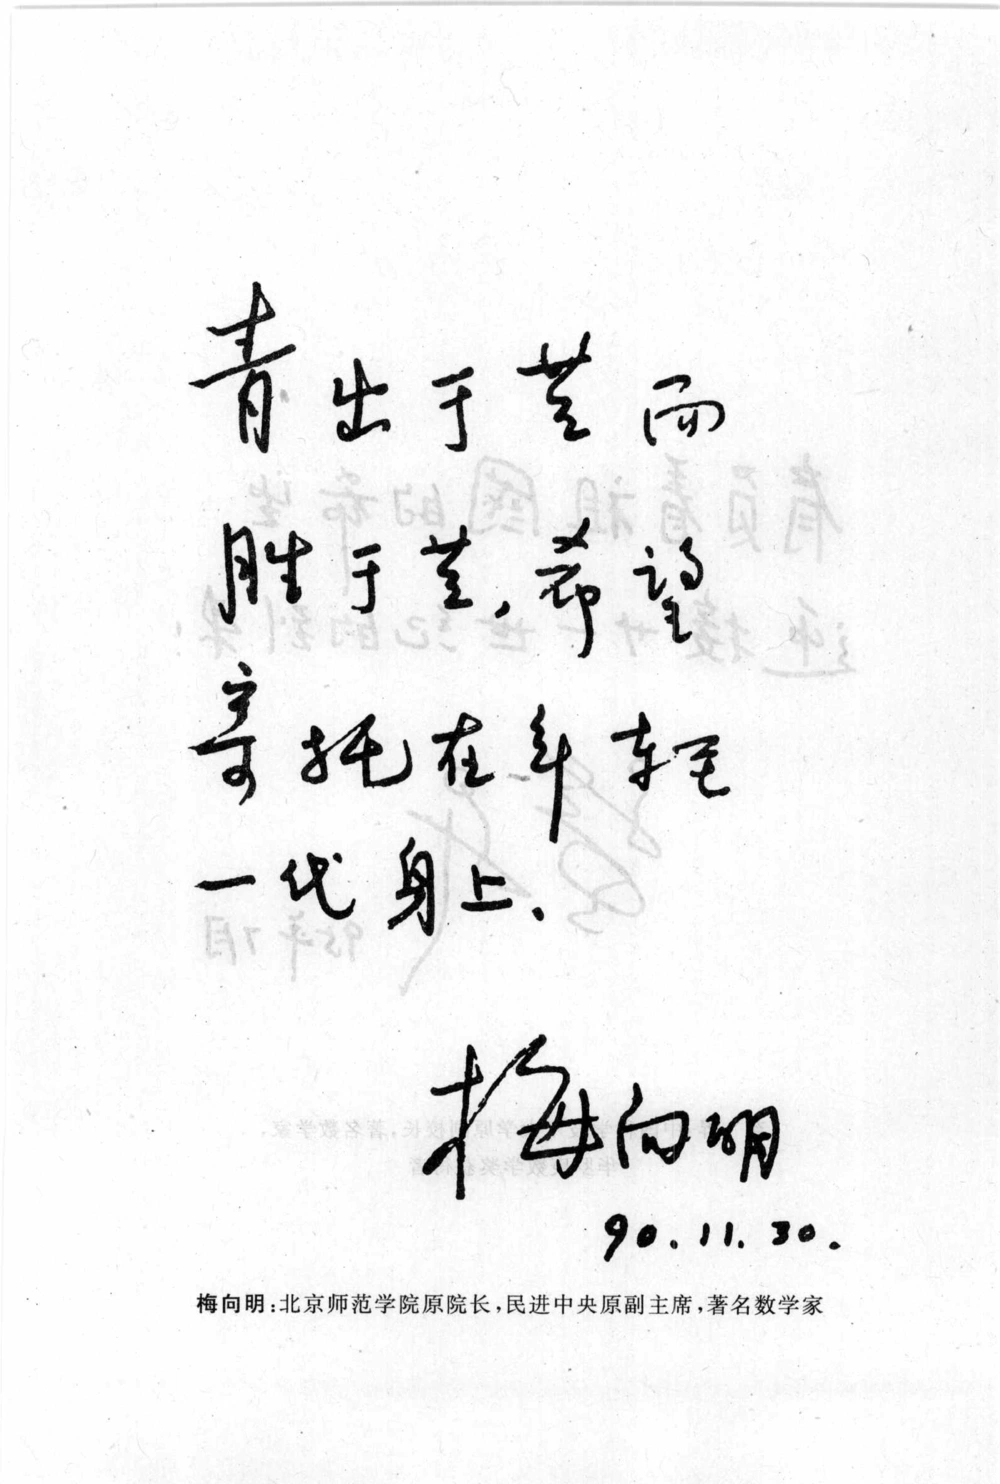 青出于兰而
胜于兰，希望
寄托在年轻
一代身上、
梅向明
90.11.30.
梅向明:北京师范学院原院长,民进中央原副主席,著名数学家